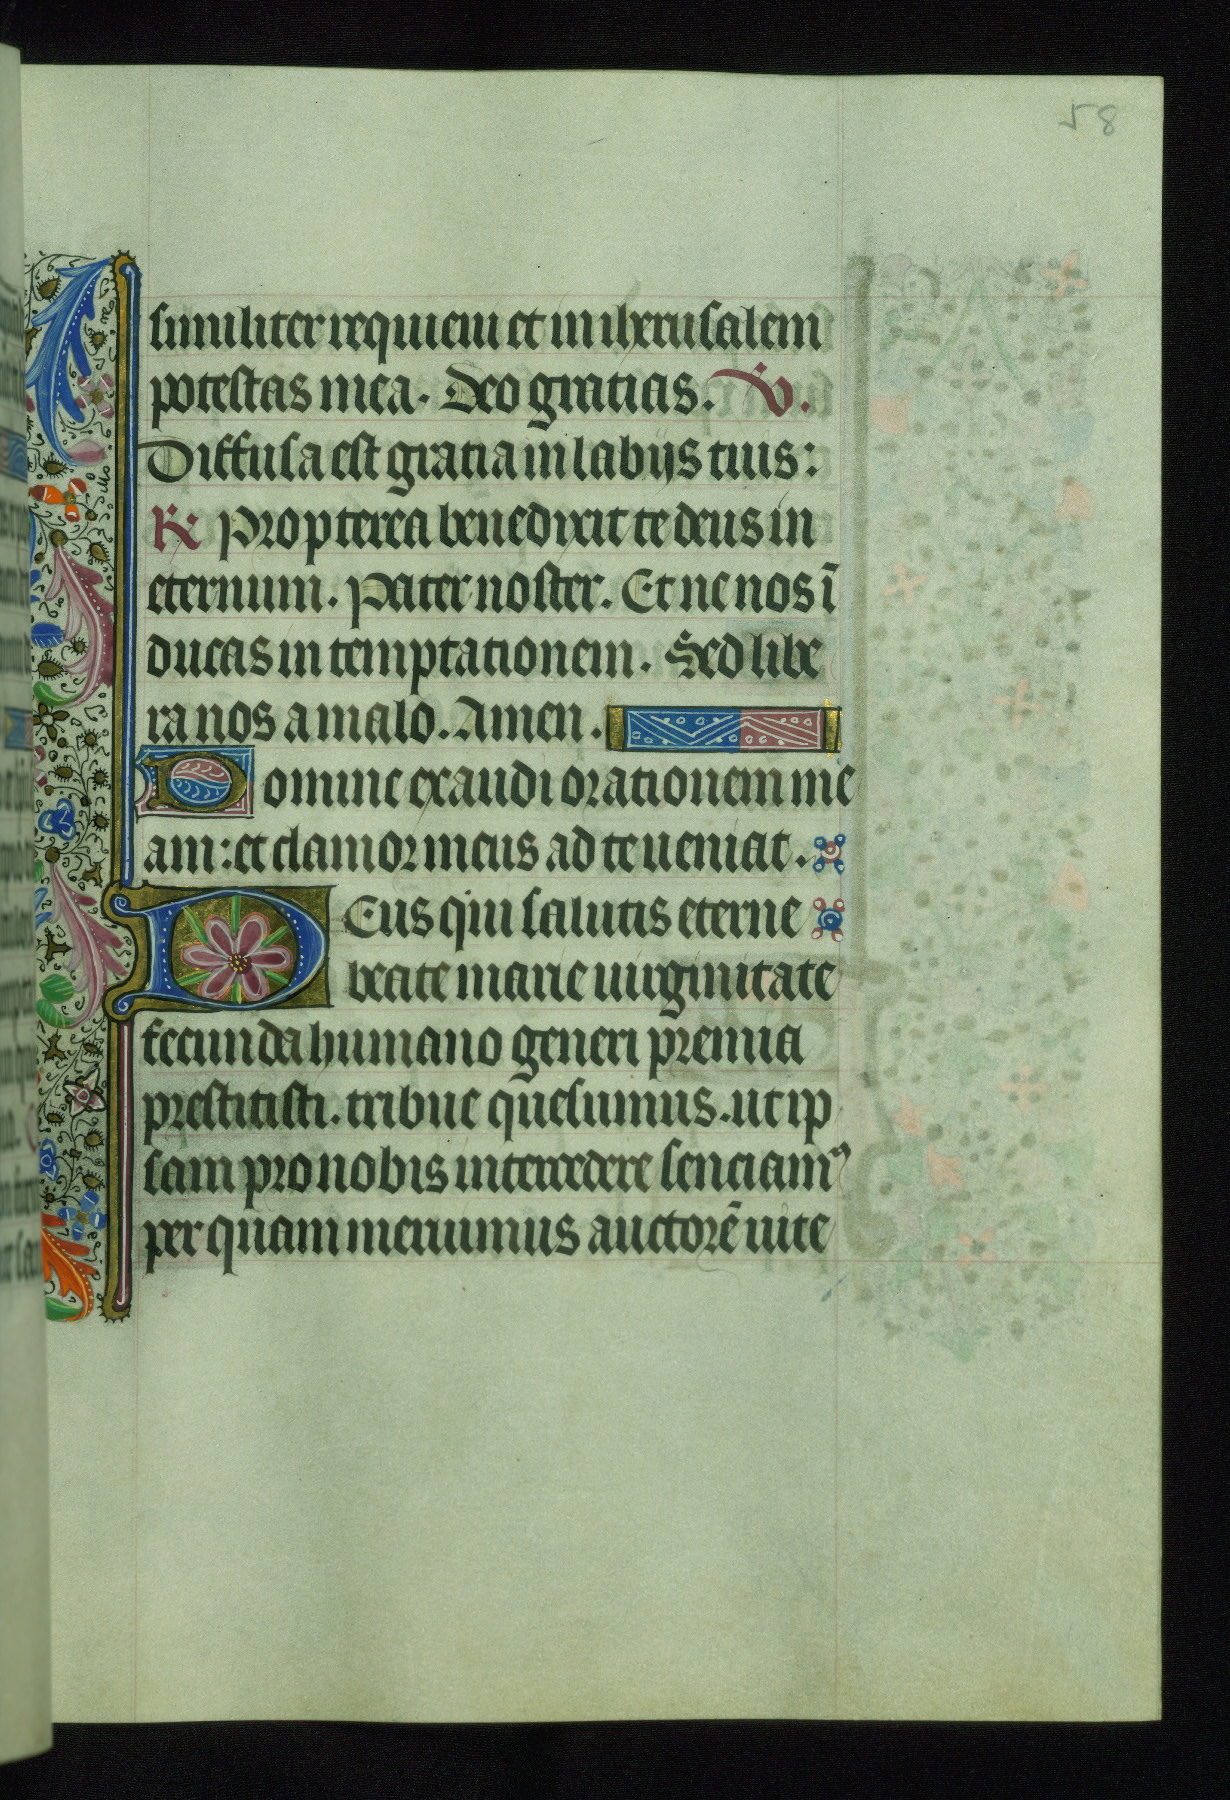 58
similiter requieui et in iherusalem
potestas mea. Deo gratias. V.
Diffusa est gratia in labijs tuis:
R Propterea benedixit te deus in
eternum. Pater noster. Et ne nos ī
ducas in temptationem. Sed libe
ra nos a malo. Amen.
Domine exaudi orationem me
am: et clamor meus ad te ueniat.
Deus qui salutis eterne
beate marie uirginitate
fecunda humano generi premia
prestitisti. tribue quesumus. ut ip
sam pro nobis intercedere senciamꝰ
per quam meruimus auctorē uite